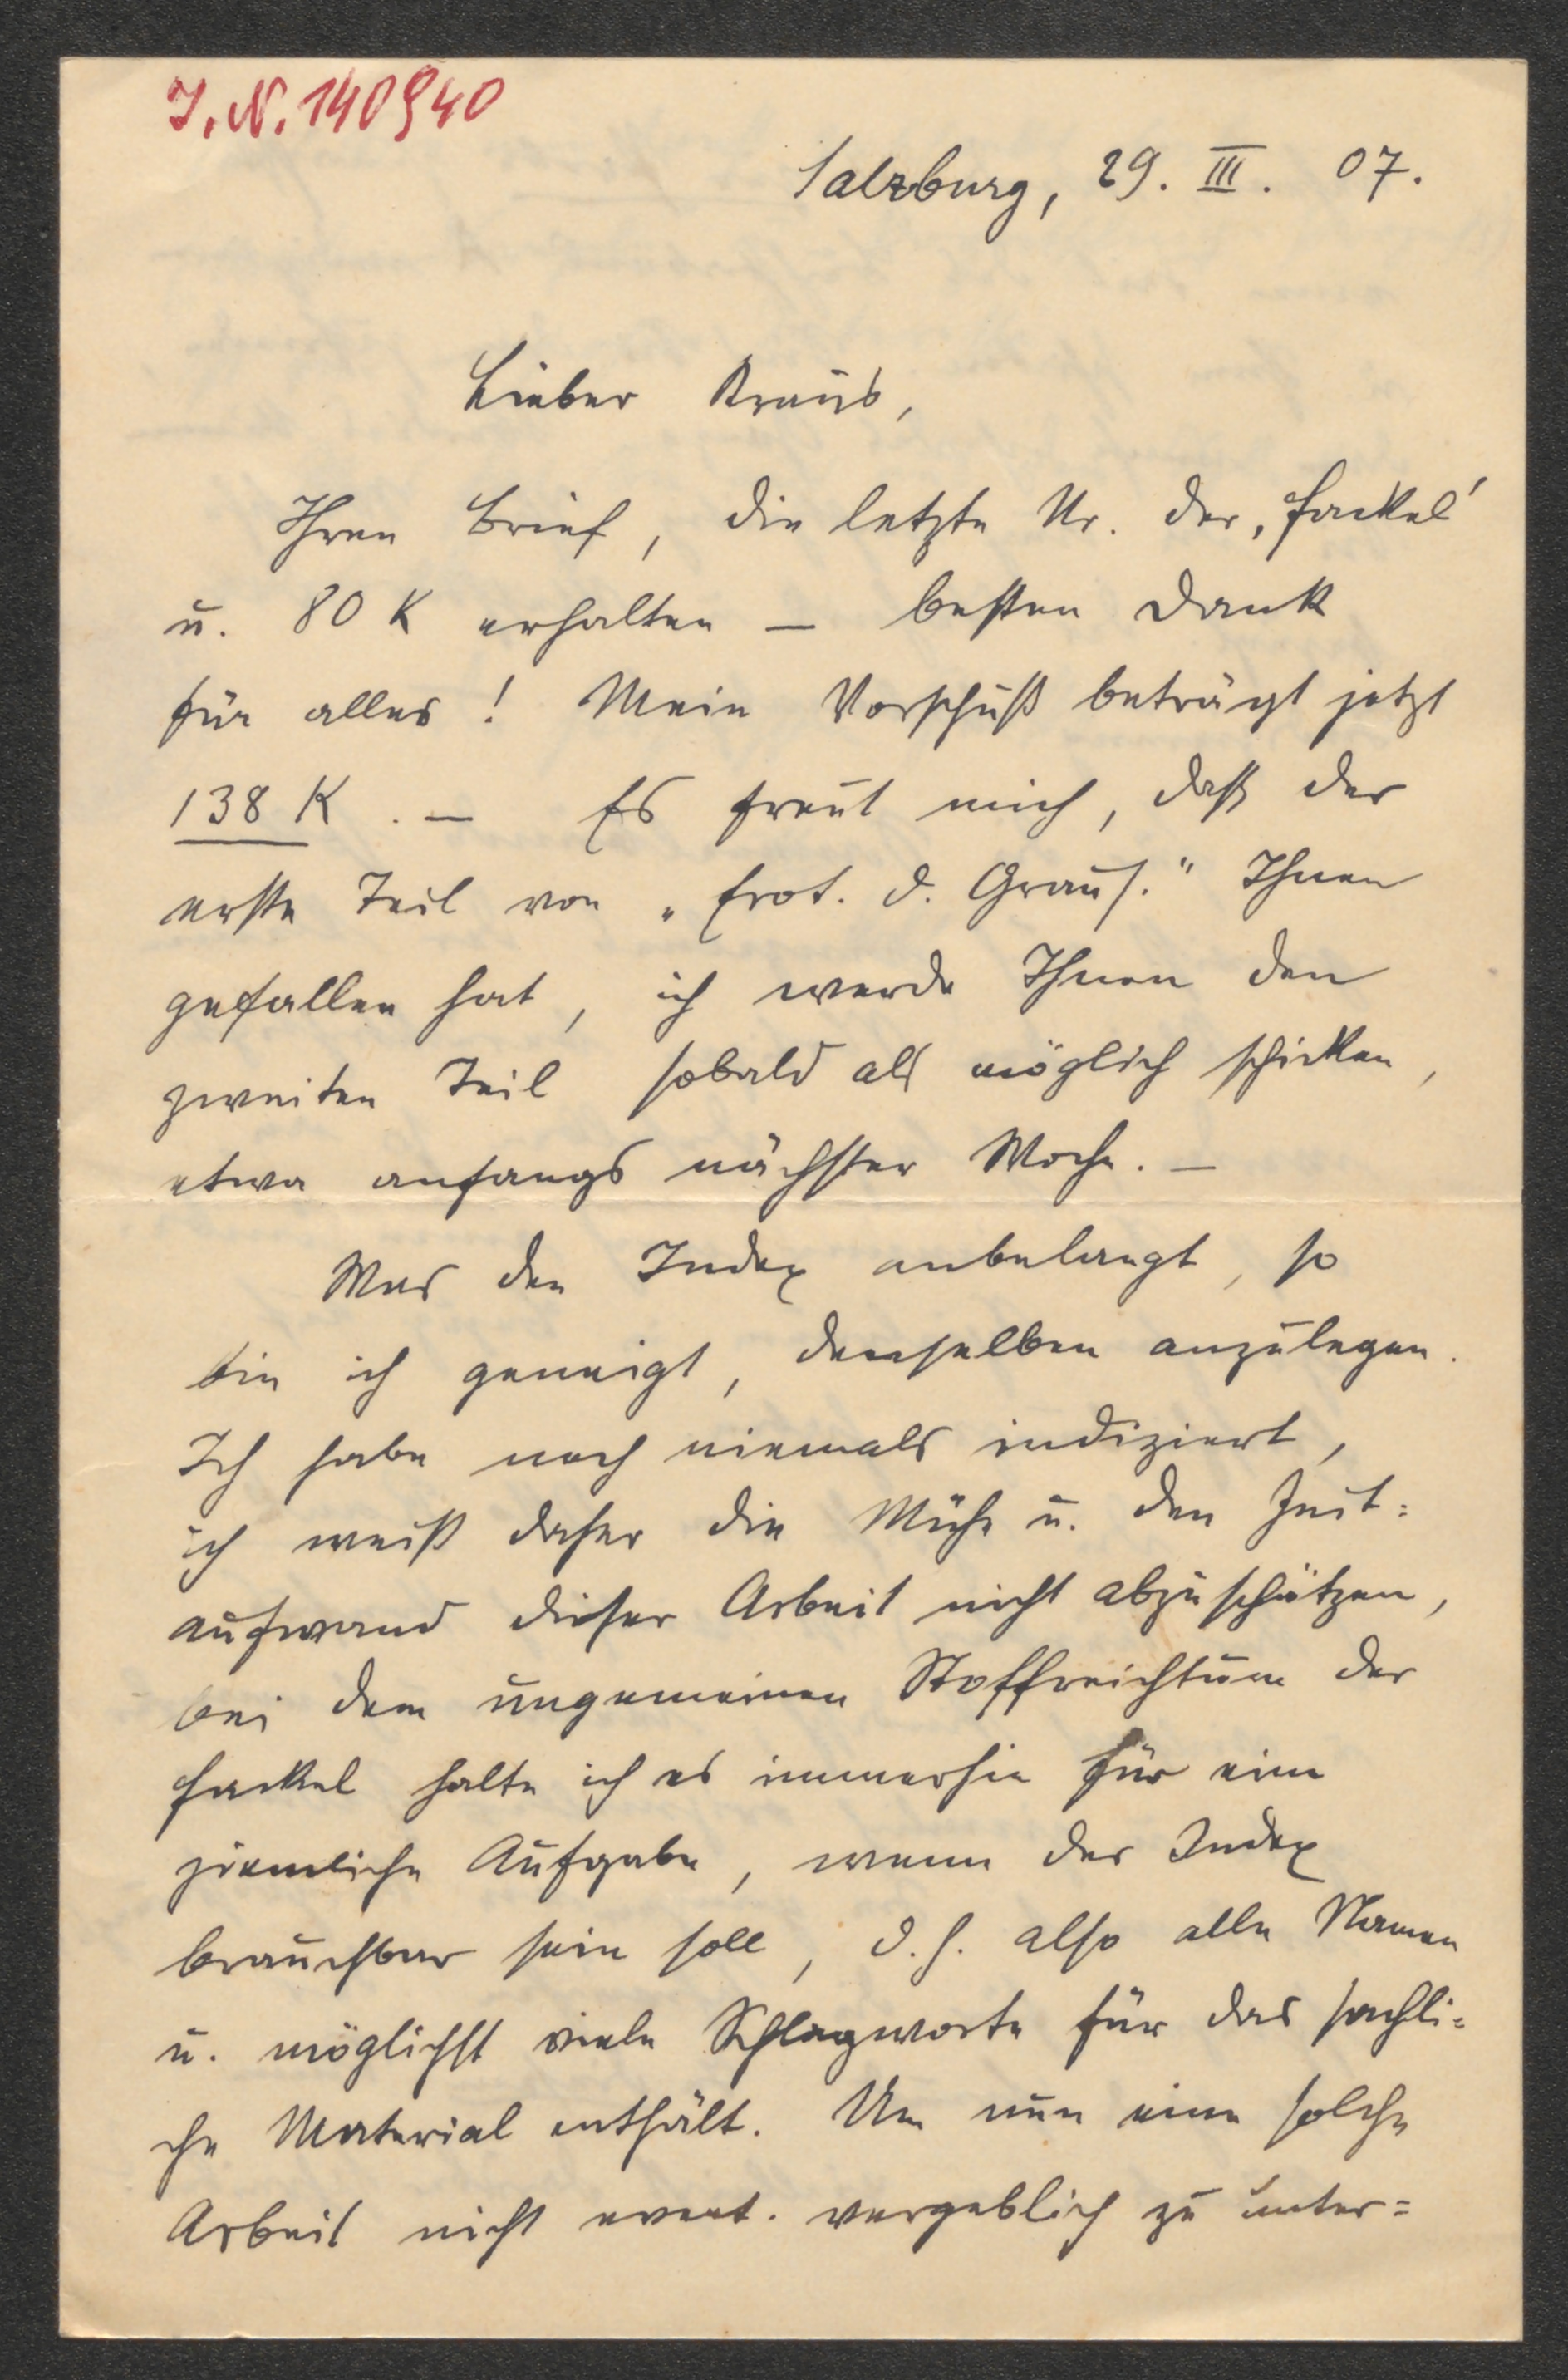 I. N. 140940
Salzburg, 29. III. 07.
Lieber Kraus,
Ihren Brief, die letzte Nr. der ‚Fackel'
u. 80 K erhalten — besten Dank
für alles! Mein Vorschuß beträgt jetzt
138 K. — Es freut mich, daß der
erste Teil von „Erot. d. Graus." Ihnen
gefallen hat, ich werde Ihnen den
zweiten Teil sobald als möglich schicken,
etwa anfangs nächster Woche. —
Was den Index anbelangt, so
bin ich geneigt, denselben anzulegen.
Ich habe noch niemals indiziert,
ich weiß daher die Mühe u. den Zeit=
aufwand dieser Arbeit nicht abzuschätzen,
bei dem ungemeinen Stoffreichtum der
Fackel halte ich es immerhin für eine
ziemliche Aufgabe, wenn der Index
brauchbar sein soll, d. h. also alle Namen
u. möglichst viele Schlagworte für das sachli=
che Material enthält. Um nun eine solche
Arbeit nicht event. vergeblich zu unter=